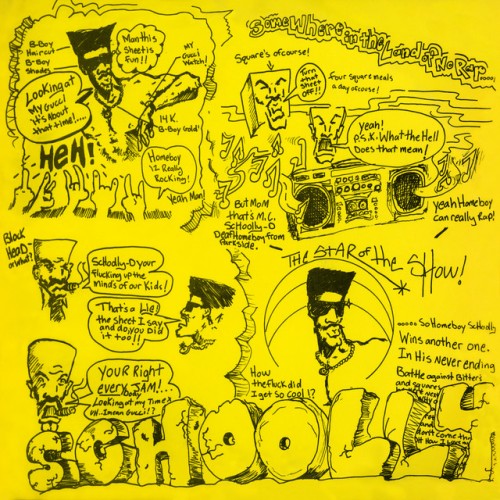 B-Boy
Haircut
B-Boy
Shades
Man this
Sheet is
Fun!!
MY
Gucci
Watch!
Looking at
My Gucci
it's About
that time!.....
14 K.
B-Boy Gold!
HEH!
Homeboy
is Really
Rocking!
Yeah Man!
Somewhere in the Land of No Rap.....
Square's of course!
Turn
that
Sheet
OFF!!
four square meals
a day of course!
Yeah!
P.S.K. What the Hell
Does that mean!
But MOM
that's M.C.
Schoolly-D
Def Homeboy from
Parkside.
yeah Homeboy
can really Rap!
Block
HeaD-
or what?
Schoolly-D your
flucking up the
minds of our Kids!
That's a Lie!
the sheet I say
and do, you Did
it too!!
YOUR Right
every JAM!...
Looking at my Timex
UH..I mean Gucci!?
THE STAR of the SHOW!
..... So Homeboy Schoolly
Wins another one.
In His Never ending
Battle against Bitter!
and squares
How
the Fluck did
I get so cool!?
SCHOOLLY